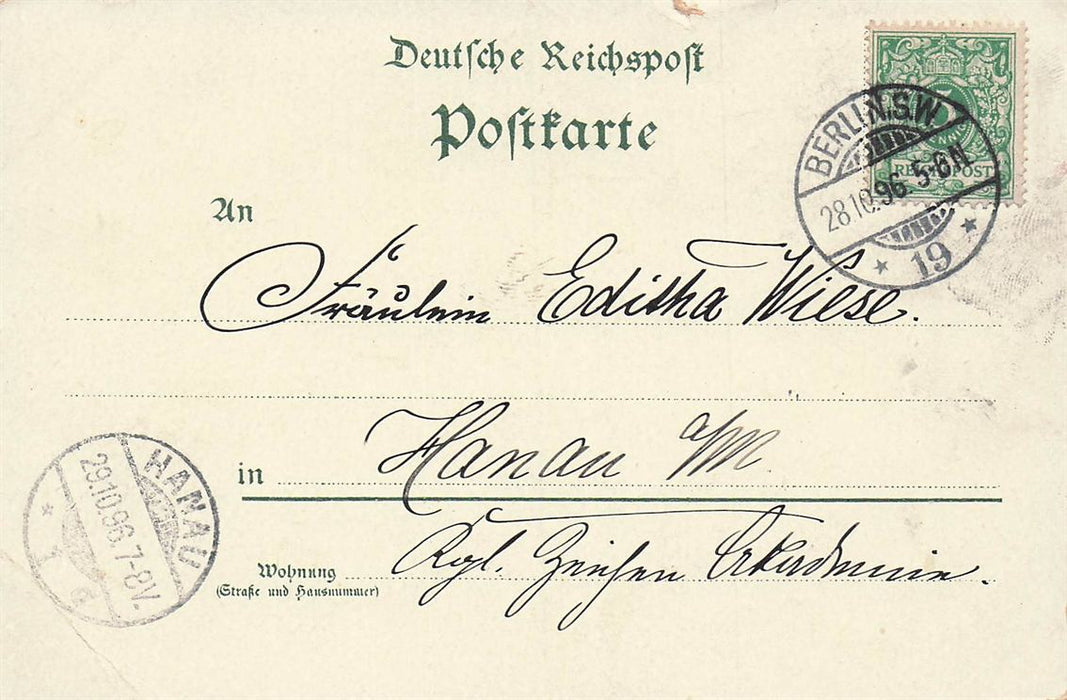 Deutsche Reichspost
Postkarte
5
PFENNIG
REICHSPOST
BERLIN.S.W.
28.10.96. 5-6N
* 19 *
An
Fräulein Editha Wiese.
in Hanau a/M.
Wohnung Kgl. Zeichen Akademie.
(Straße und Hausnummer)
HANAU
29.10.96. 7-8V.
* 1 a